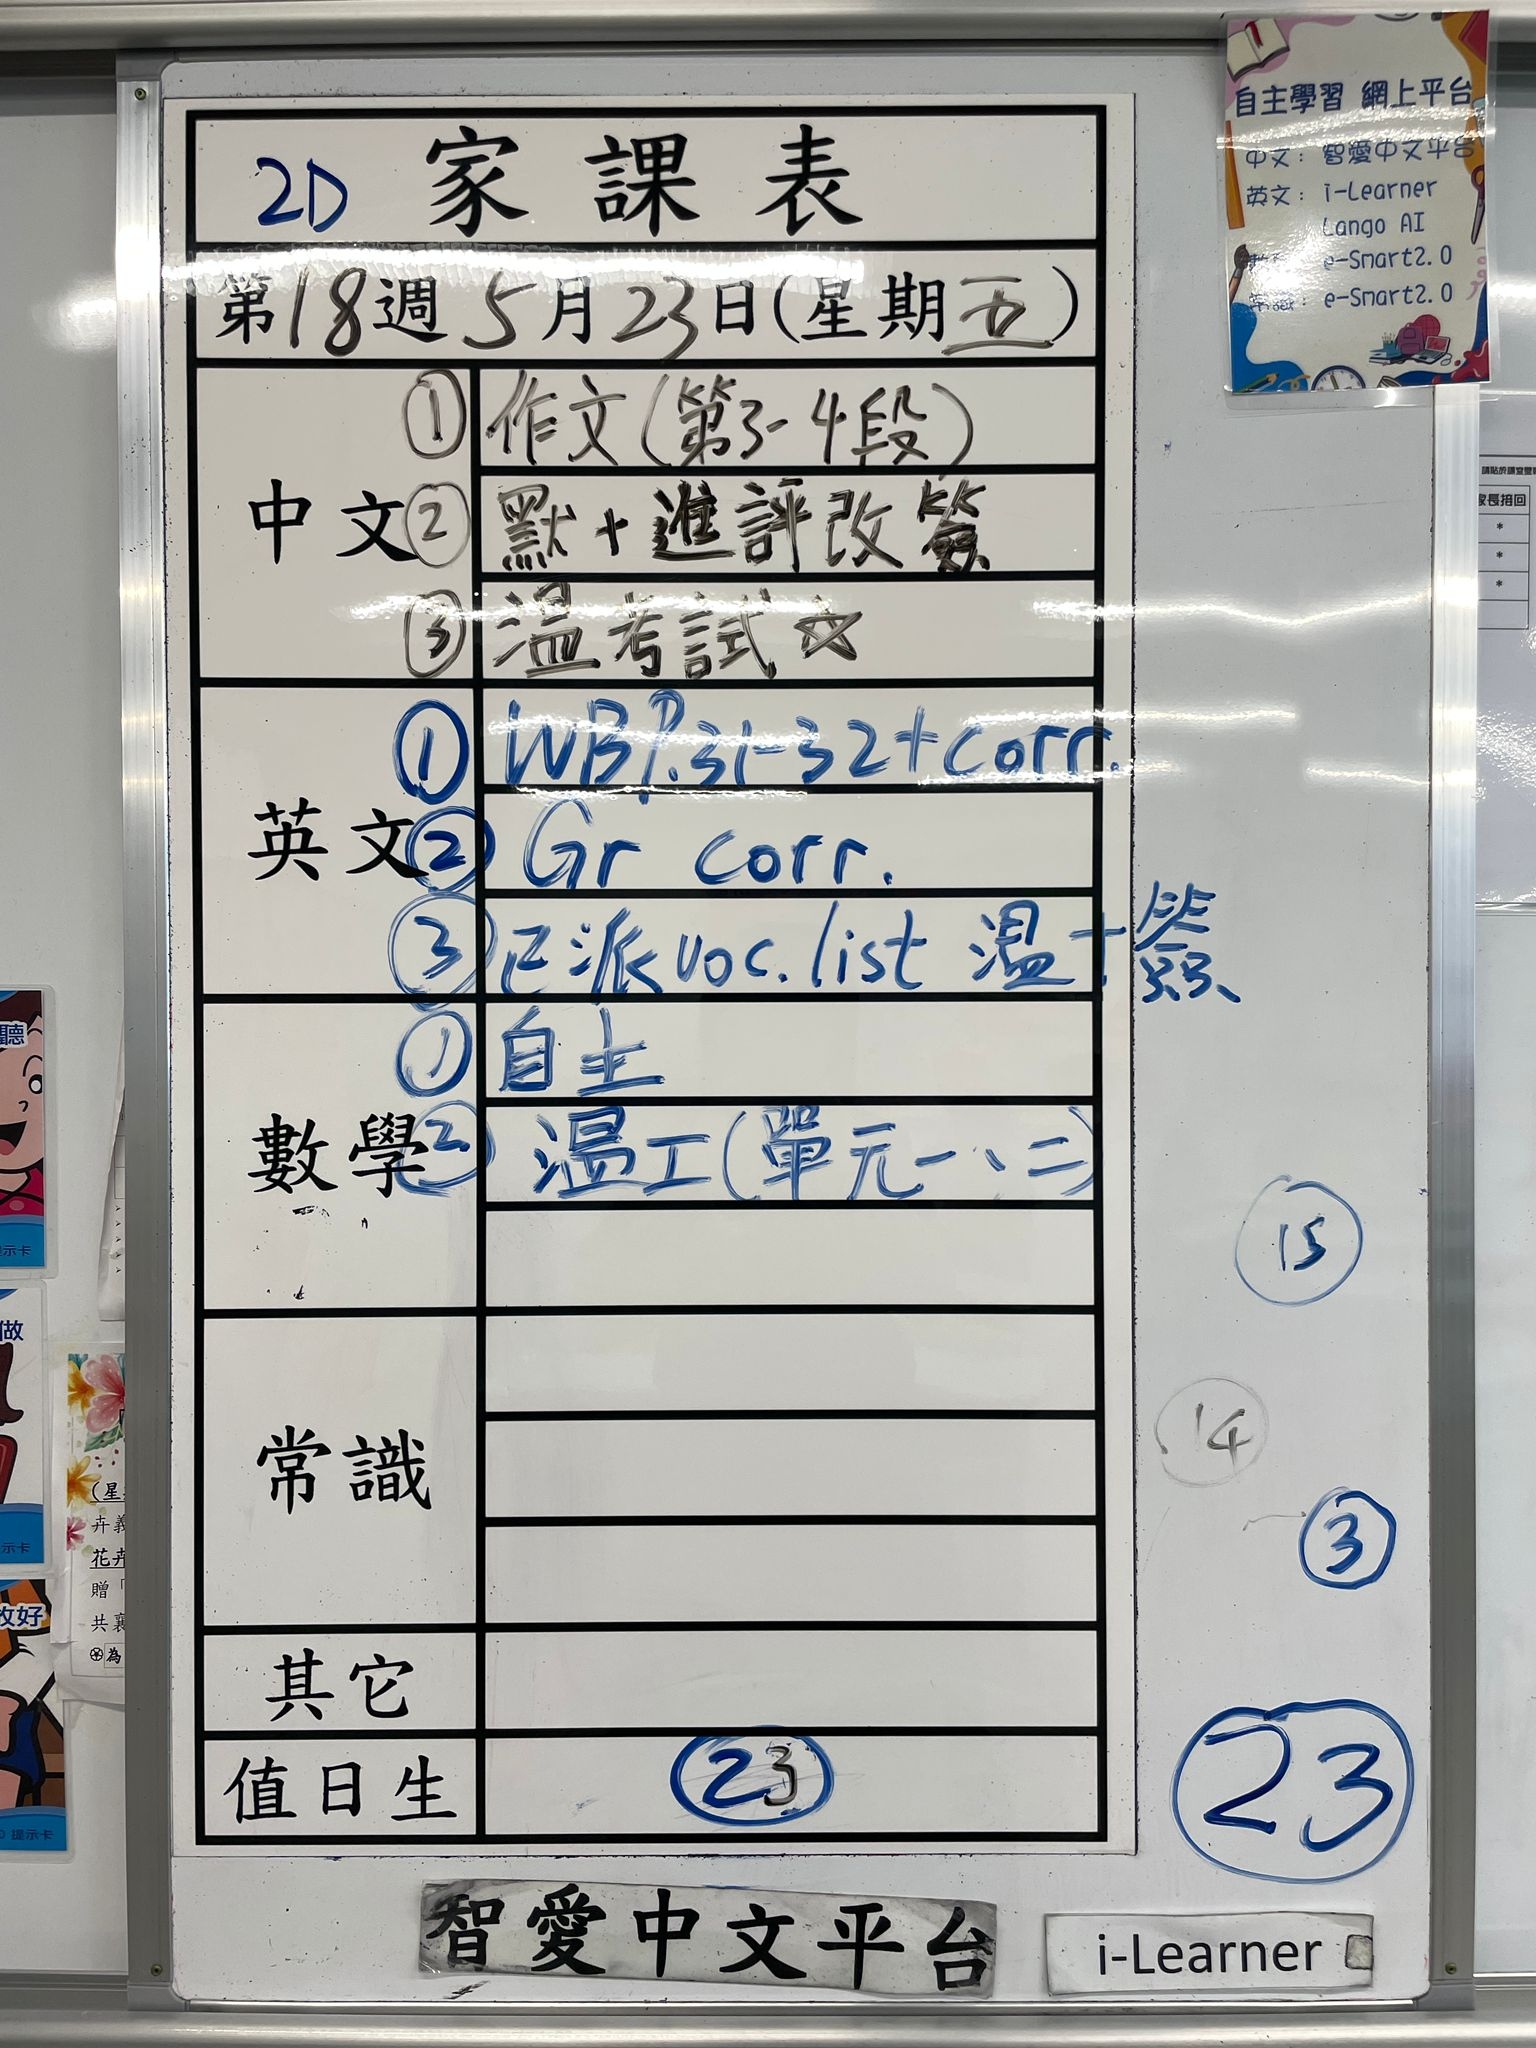 2D 家課表
第18週5月23日(星期五)
中文
① 作文(第3-4段)
② 默+進評改簽
③ 温考試☆
英文
① WB P.31-32+corr.
② Gr corr.
③ 已派voc.list 溫+簽
數學
① 自主
② 温工(單元一、二)
常識
其它
值日生
23
15
14
3
23
智愛中文平台
i-Learner
自主學習 網上平台
中文：智愛中文平台
英文：i-Learner
Lango AI
e-Smart2.0
常識：e-Smart2.0
家長捎回
*
*
*
聽
提示卡
做
示卡
放好
提示卡
(星
卉義
花卉
贈「
共襄
為